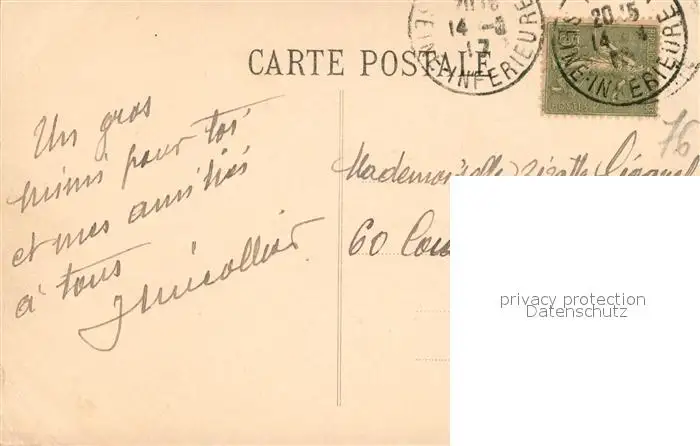 CARTE POSTALE
20 15
14 -
17
SEINE-INFERIEURE
20 15
14
SEINE-INFERIEURE
76
Un gros
mimi pour toi
et mes amitiés
à tous
Mademoiselle
60
privacy protection
Datenschutz